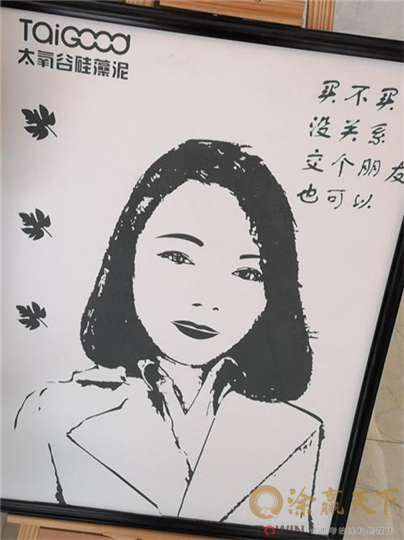 TaiGood
太氧谷硅藻泥
买不买
没关系
交个朋友
也可以
涂赢天下